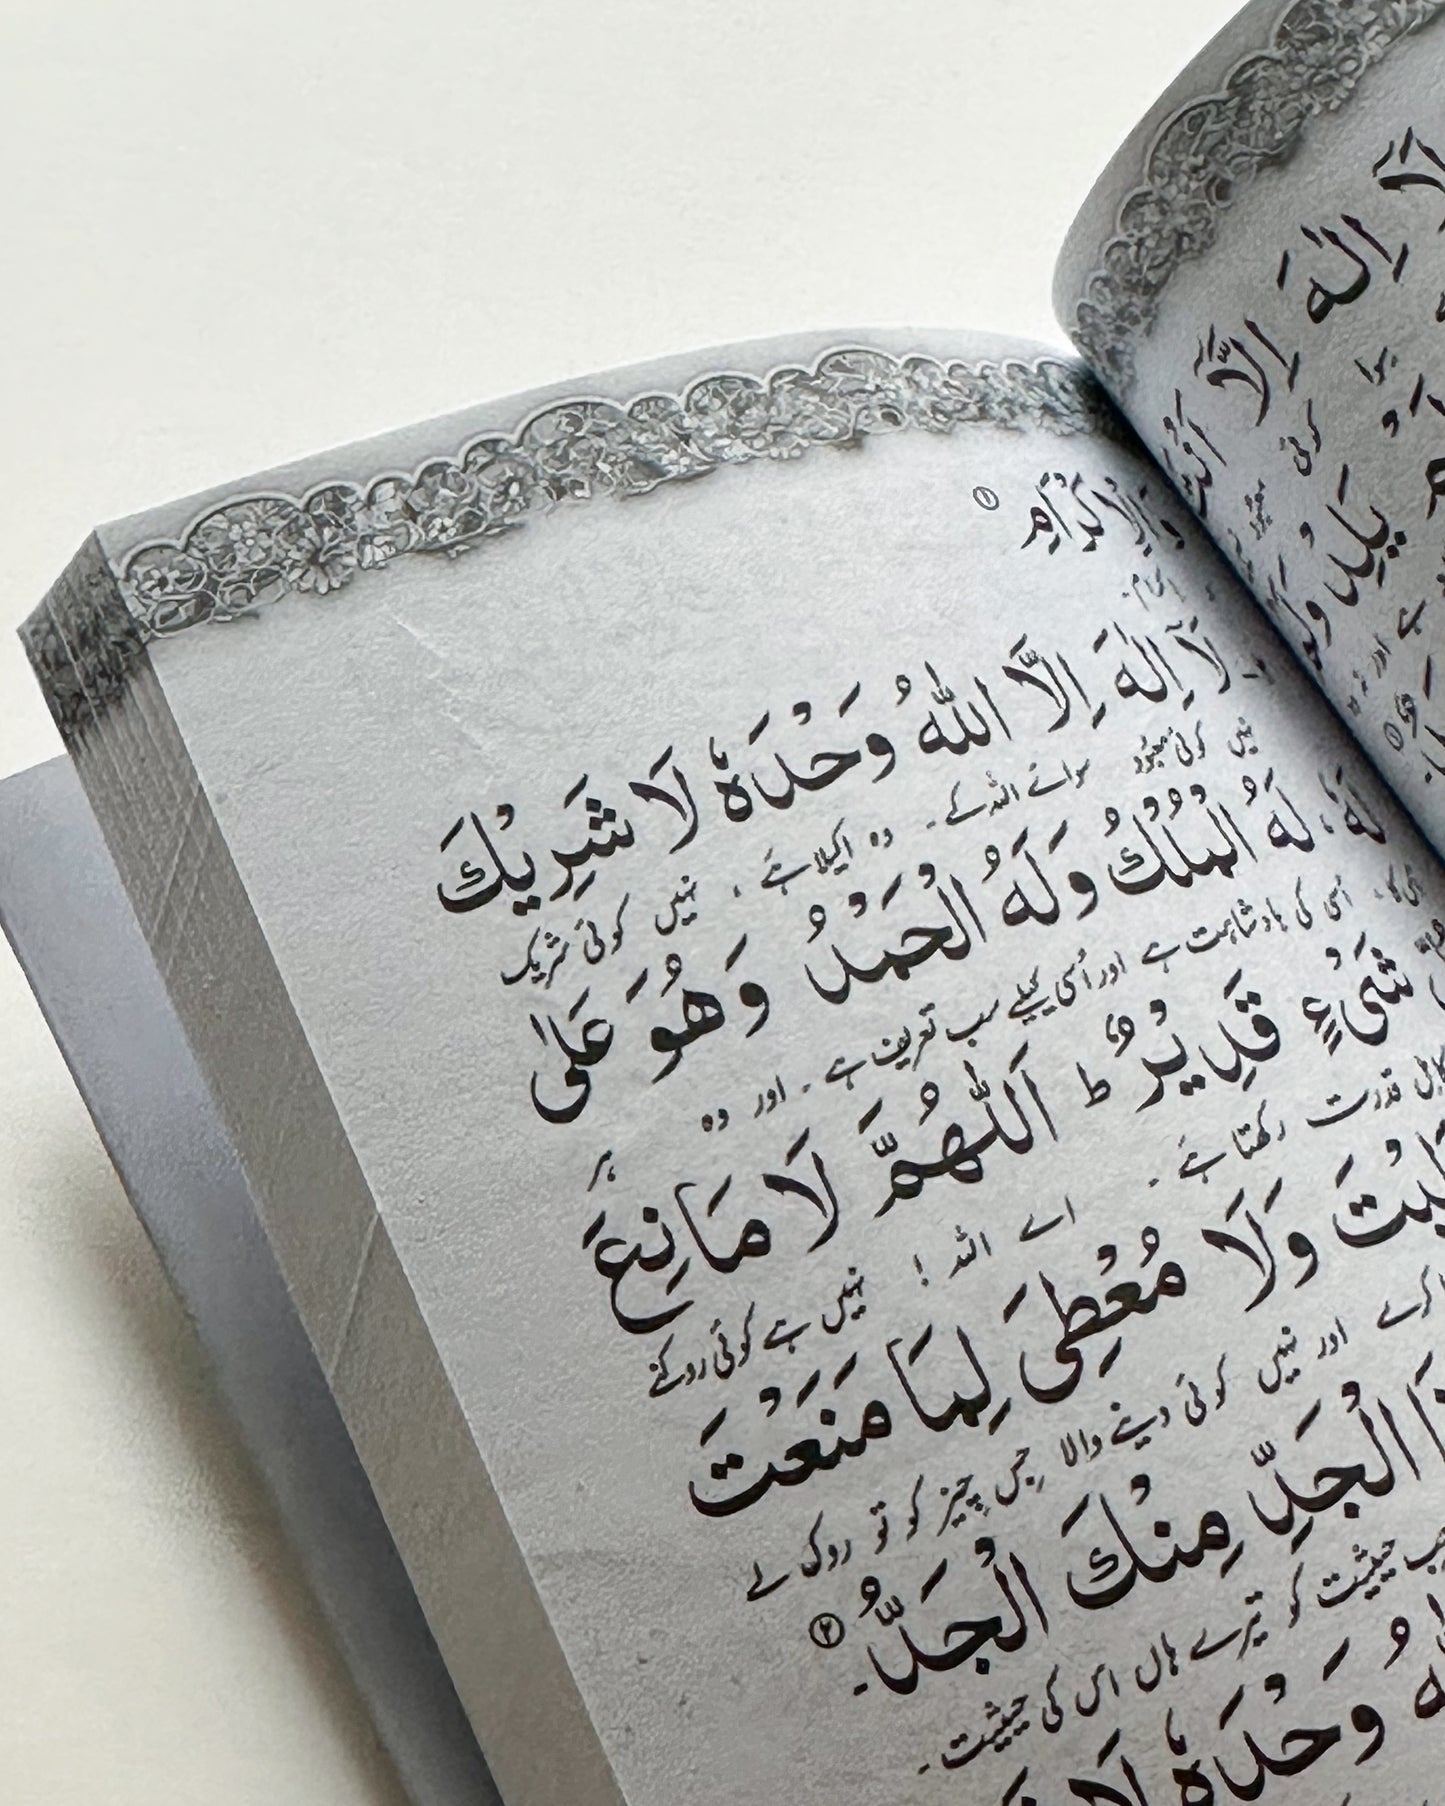 وَالْاِكْرَامِ ①
اکرام۔
لَآ اِلٰهَ اِلَّا اللّٰهُ وَحْدَهٗ لَا شَرِيْكَ
نہیں کوئی معبود سوائے اللہ کے۔ وہ اکیلا ہے ، نہیں کوئی شریک
لَهٗ ، لَهُ الْمُلْكُ وَلَهُ الْحَمْدُ وَهُوَ عَلٰى
اُسی کی بادشاہت ہے اور اُسی کیلئے سب تعریف ہے۔ اور وہ ہر
شَىْءٍ قَدِيْرٌ ط اَللّٰهُمَّ لَا مَانِعَ
قدرت رکھتا ہے۔ اے اللہ ! نہیں ہے کوئی روکنے
وَلَا مُعْطِىَ لِمَا مَنَعْتَ
کرے اور نہیں کوئی دینے والا جس چیز کو تو روک لے
الْجَدِّ مِنْكَ الْجَدُّ۔ ②
حیثیت کو تیرے ہاں اس کی حیثیت۔
وَحْدَهٗ لَا
اِلٰهَ اِلَّا اَنْتَ
کوئی
يَلِدْ وَلَمْ
ہے اور نہ